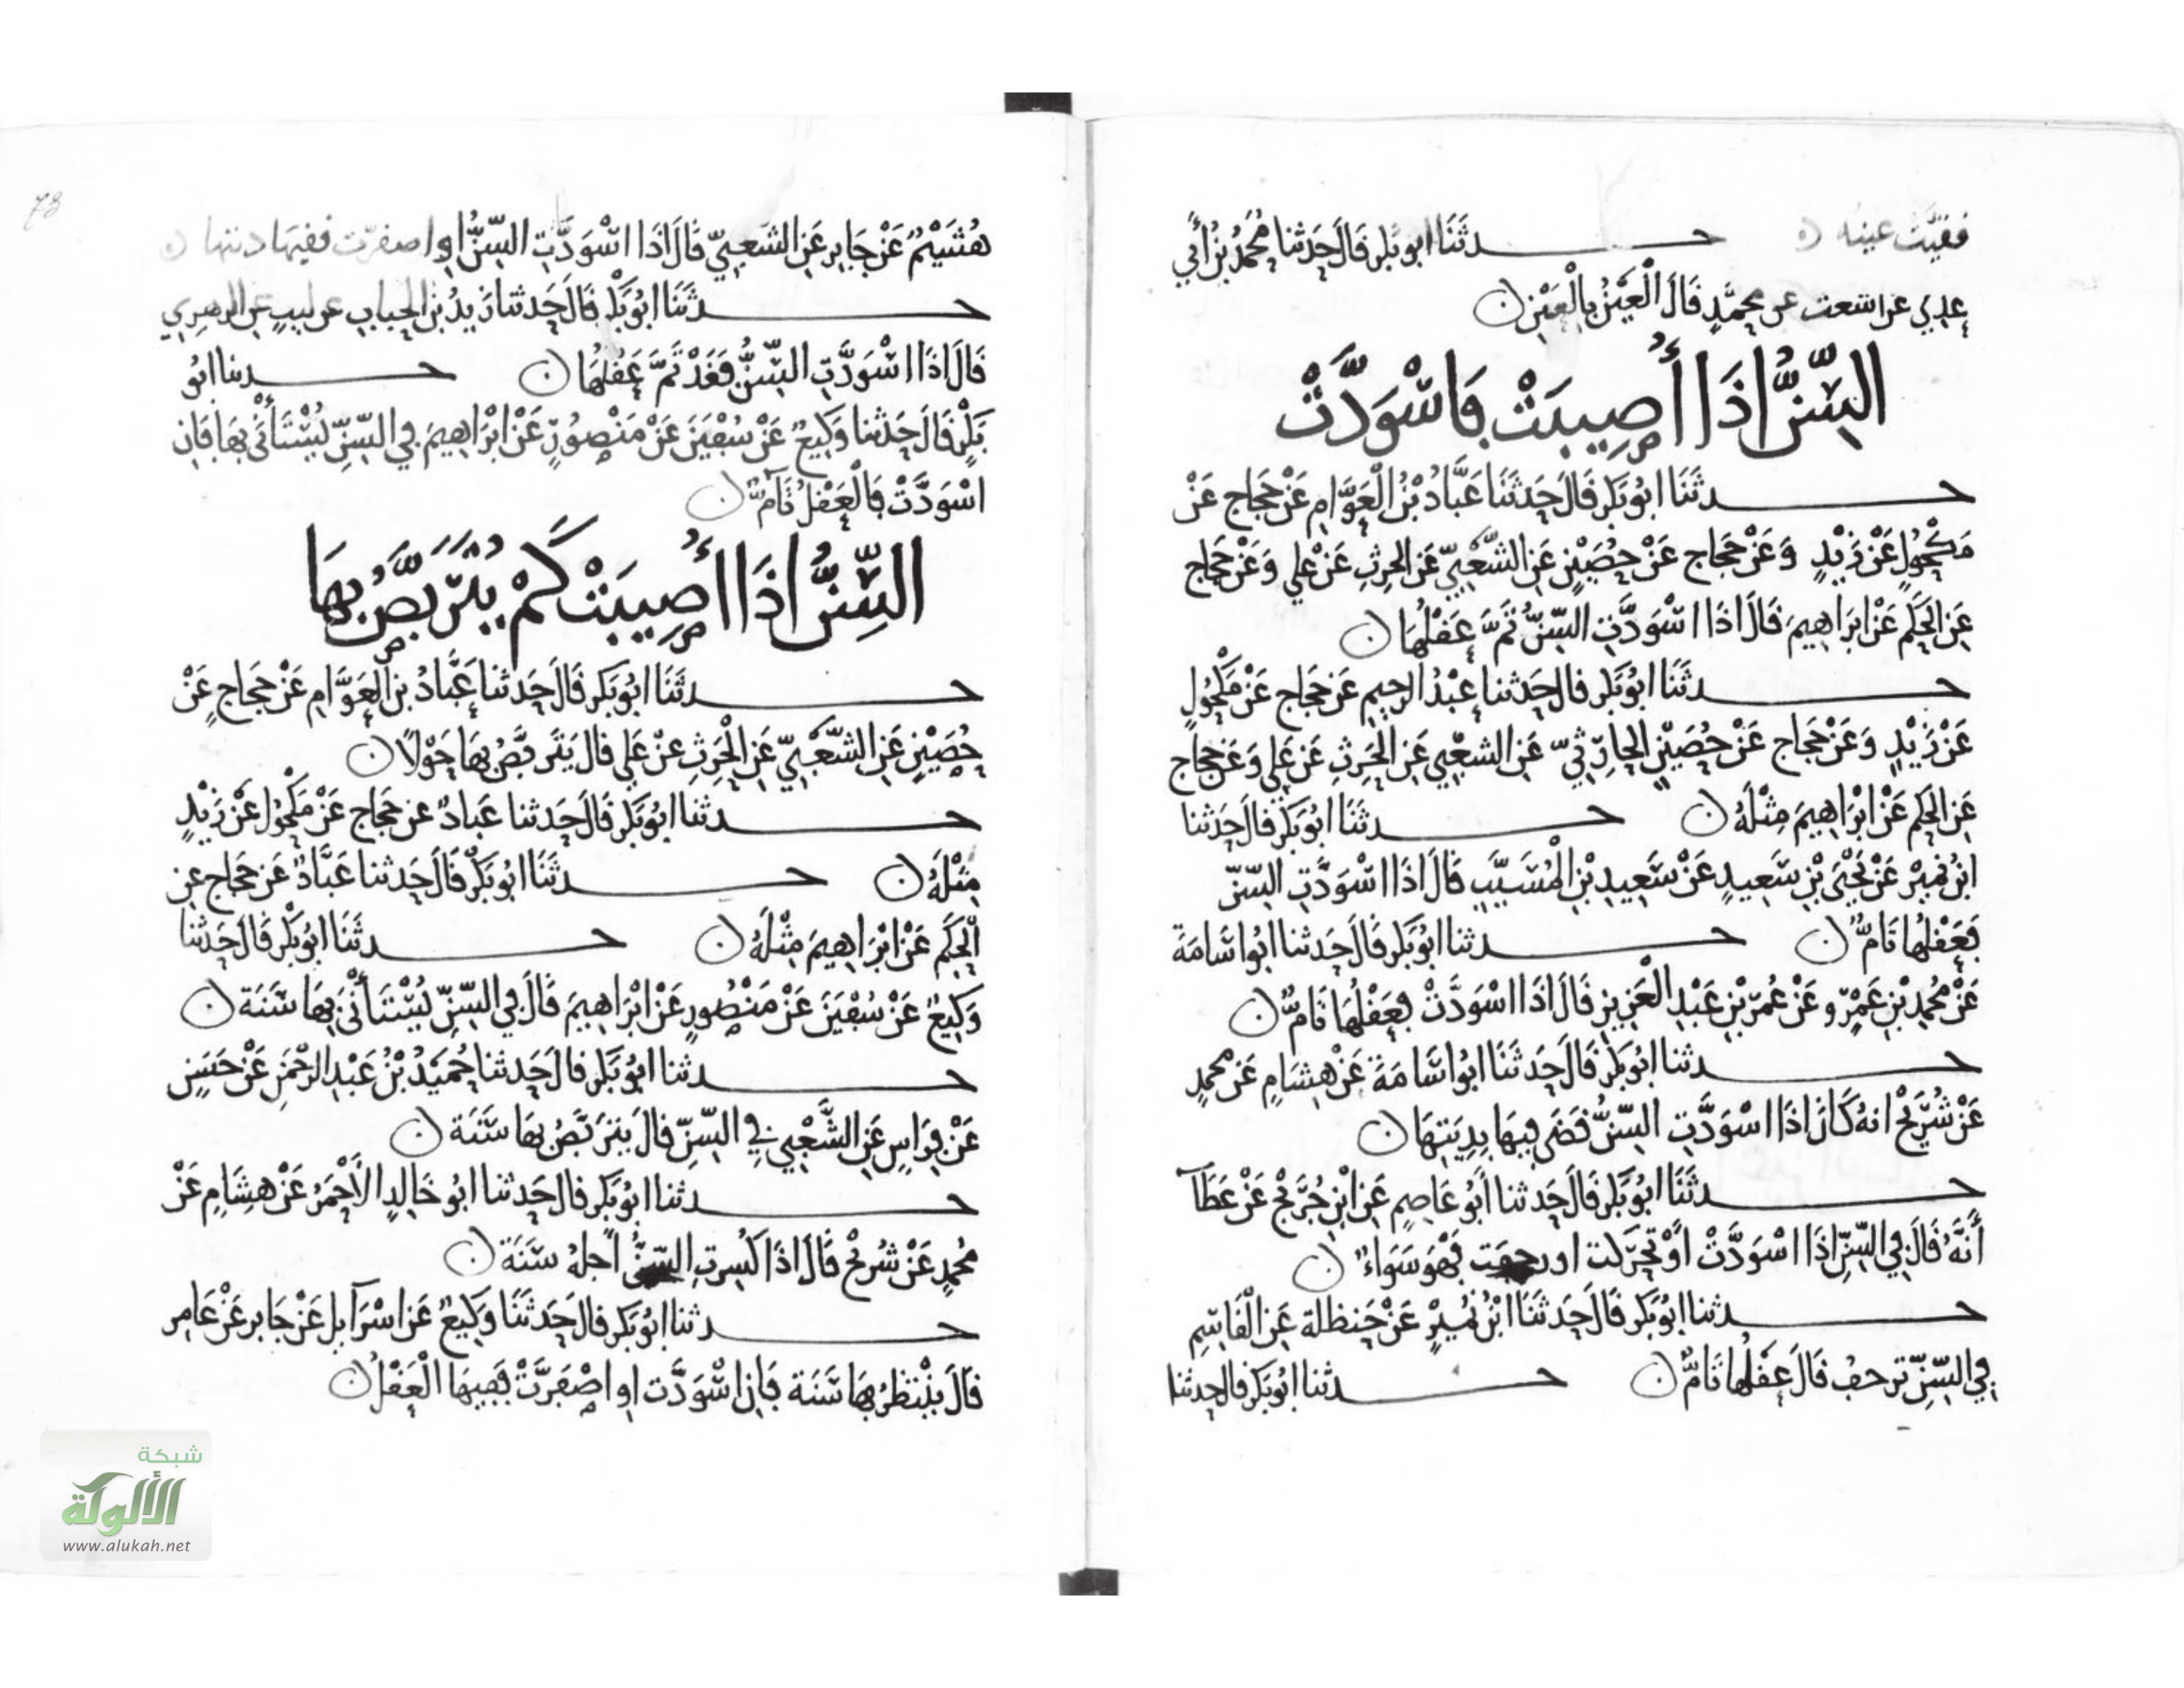 ففقئت عينه ه حدثنا ابو بكر قال حدثنا محمد بن أبي
عدي عن اشعث عن محمد قال العين بالعين ه
السِّنُّ اذَا أُصِيبَتْ فَاسْوَدَّتْ
حدثنا ابو بكر قال حدثنا عباد بن العوام عن حجاج عن
مكحول عن زيد وعن حجاج عن حصين عن الشعبي عن الحرث عن علي وعن حجاج
عن الحكم عن ابراهيم قال اذا اسودت السن تم عقلها ه
حدثنا ابو بكر قال حدثنا عبد الرحيم عن حجاج عن مكحول
عن زيد وعن حجاج عن حصين الحارثي عن الشعبي عن الحرث عن علي وعن حجاج
عن الحكم عن ابراهيم مثله ه حدثنا ابو بكر قال حدثنا
ابن نمير عن يحيى بن سعيد عن سعيد بن المسيب قال اذا اسودت السن
فعقلها تام ه حدثنا ابو بكر قال حدثنا ابو اسامة
عن محمد بن عمرو عن عمر بن عبد العزيز قال اذا اسودت فعقلها تام ه
حدثنا ابو بكر قال حدثنا ابو اسامة عن هشام عن محمد
عن شريح انه كان اذا اسودت السن قضى فيها بديتها ه
حدثنا ابو بكر قال حدثنا أبو عاصم عن ابن جريج عن عطآ
أنه قال في السن اذا اسودت أو تحركت او رجفت فهو سواء ه
حدثنا ابو بكر قال حدثنا ابن نمير عن حنظلة عن القاسم
في السن ترجف قال عقلها تام ه حدثنا ابو بكر قال حدثنا
73
هشيم عن جابر عن الشعبي قال اذا اسودت السن او اصفرت ففيها ديتها ه
حدثنا ابو بكر قال حدثنا زيد بن الحباب عن ليث عن الزهري
قال اذا اسودت السن فقد تم عقلها ه حدثنا ابو
بكر قال حدثنا وكيع عن سفين عن منصور عن ابراهيم في السن يستأنى بها فان
اسودت فالعقل تام ه
السِّنُّ اذَا أُصِيبَتْ كَمْ يُتَرَبَّصُ بِهَا
حدثنا ابو بكر قال حدثنا عباد بن العوام عن حجاج عن
حصين عن الشعبي عن الحرث عن علي قال يتربص بها حولا ه
حدثنا ابو بكر قال حدثنا عباد عن حجاج عن مكحول عن زيد
مثله ه حدثنا ابو بكر قال حدثنا عباد عن حجاج عن
الحكم عن ابراهيم مثله ه حدثنا ابو بكر قال حدثنا
وكيع عن سفين عن منصور عن ابراهيم قال في السن يستأنى بها سنة ه
حدثنا ابو بكر قال حدثنا حميد بن عبد الرحمن عن حسن
عن فراس عن الشعبي في السن قال يتربص بها سنة ه
حدثنا ابو بكر قال حدثنا ابو خالد الأحمر عن هشام عن
محمد عن شريح قال اذا كسرت السن اجله سنة ه
حدثنا ابو بكر قال حدثنا وكيع عن اسرآيل عن جابر عن عامر
قال ينتظر بها سنة فان اسودت او اصفرت ففيها العقل ه
شبكة
الألوكة
www.alukah.net